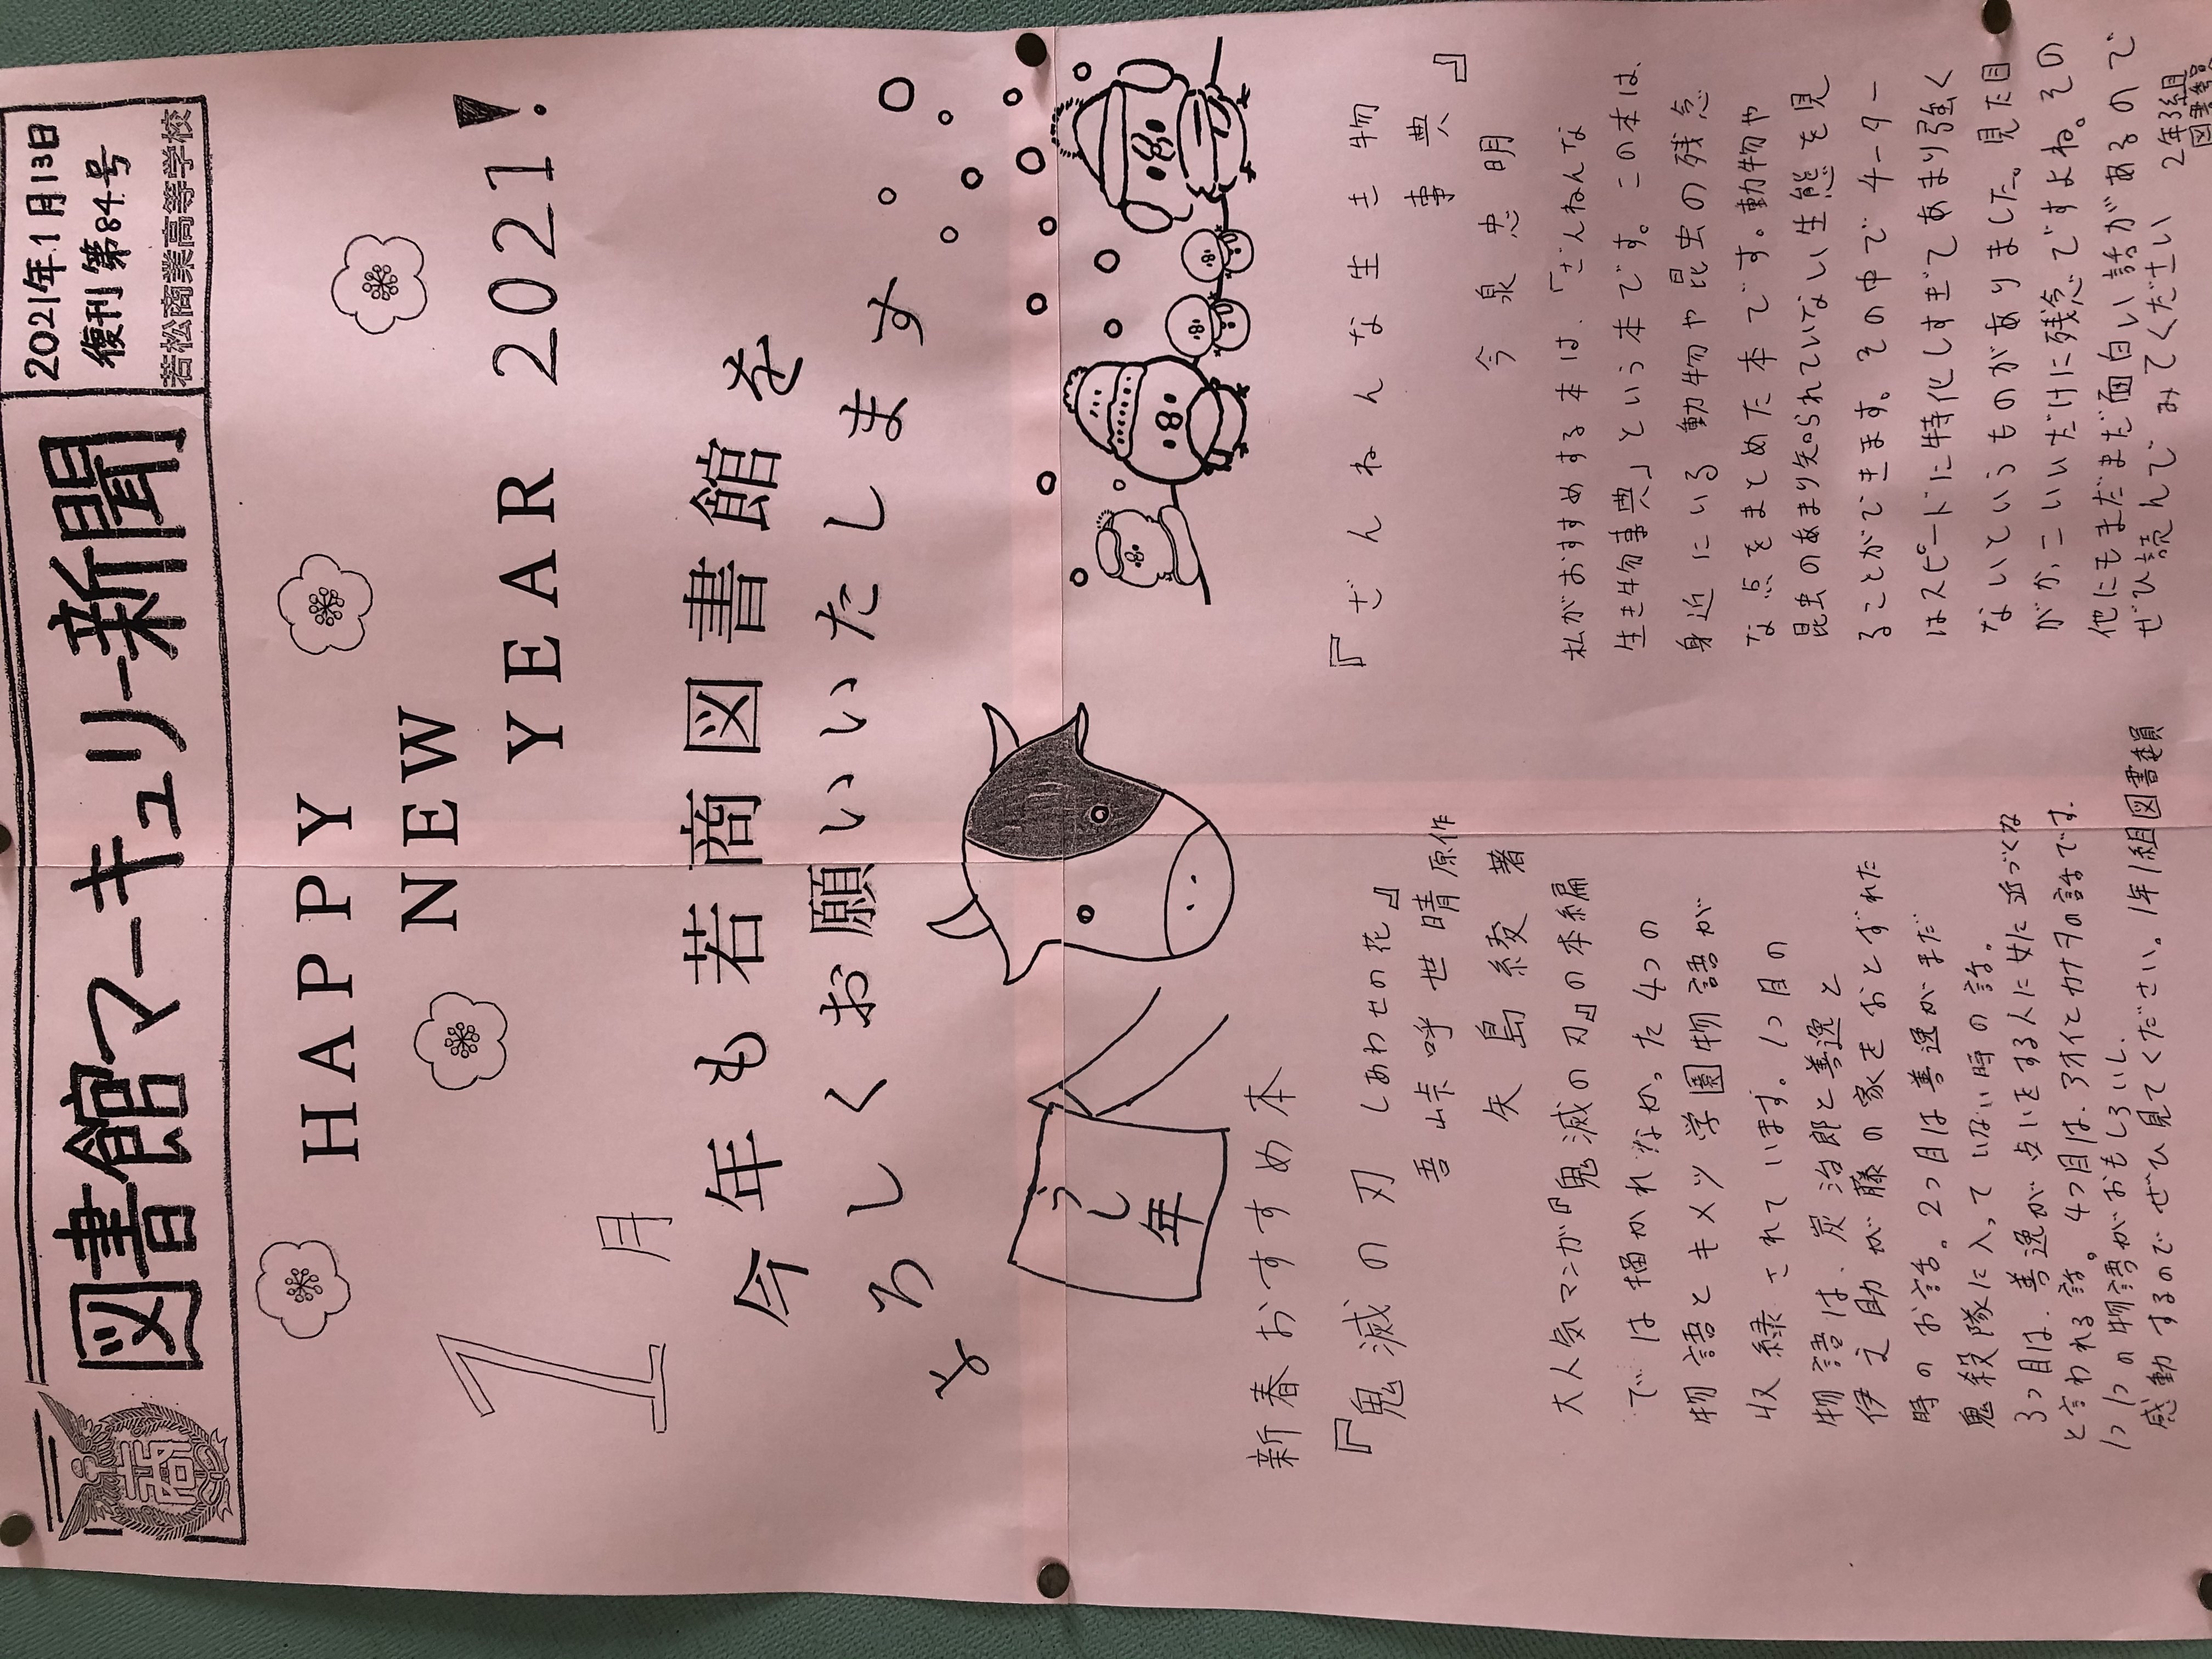 図書館マーキュリー新聞
2021年1月13日
復刊第84号
若松商業高等学校
HAPPY
NEW
YEAR 2021!
1月
今年も若商図書館を
よろしくお願いいたします
うし
年
新春おすすめ本
『鬼滅の刃 しあわせの花』
吾峠呼世晴 原作
矢島綾 著
大人気マンガ『鬼滅の刃』の本編
では描かれなかった4つの
物語とキメツ学園物語が
収録されています。1つ目の
物語は、炭治郎と善逸と
伊之助が藤の家をおとずれた
時のお話。2つ目は善逸がまだ
鬼殺隊に入っていない時の話。
3つ目は、善逸が占いをする人に女に近づくな
と言われる話。4つ目は、アオイとカナヲの話です。
1つ1つの物語がおもしろいし、
感動するのでぜひ見てください。1年1組図書委員
『ざんねんな生き物
事典』
今泉忠明
私がおすすめする本は、「ざんねんな
生き物事典」という本です。この本は、
身近にいる動物や昆虫の残念
な点をまとめた本です。動物や
昆虫のあまり知られていない生態を見
ることができます。その中でチーター
はスピードに特化しすぎてあまり強く
ないというものがありました。見た目
がかっこいいだけに残念ですよね。その
他にもまだまだ面白い話があるので
ぜひ読んでみてください 2年3組
図書委員